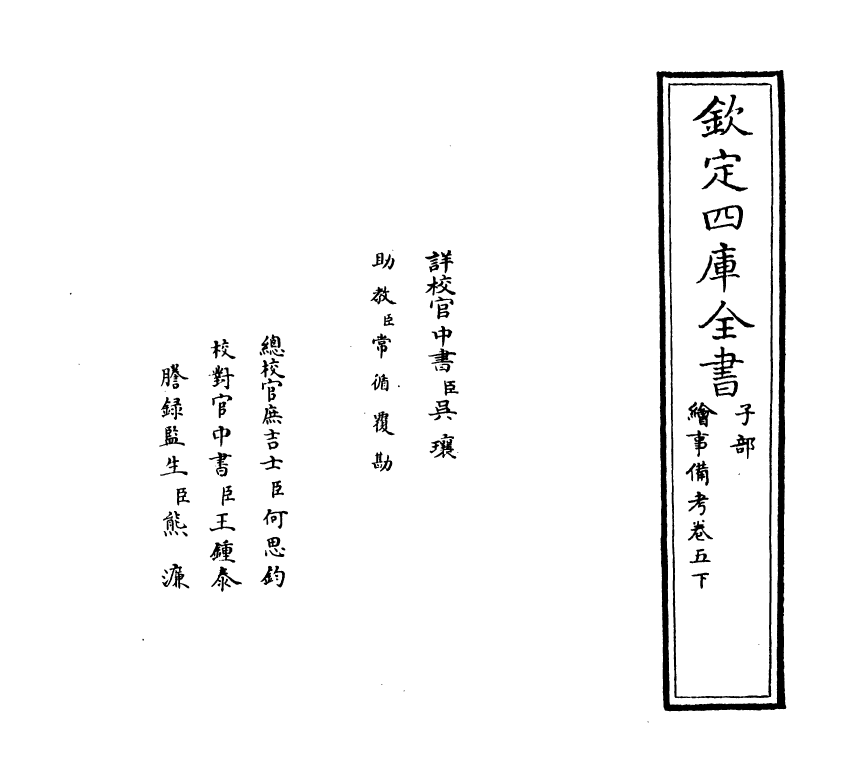 欽定四庫全書
子部
繪事備考卷五下
詳校官中書臣吳瓖
助教臣常循覆勘
總校官庶吉士臣何思鈞
校對官中書臣王鍾泰
謄録監生臣熊濂